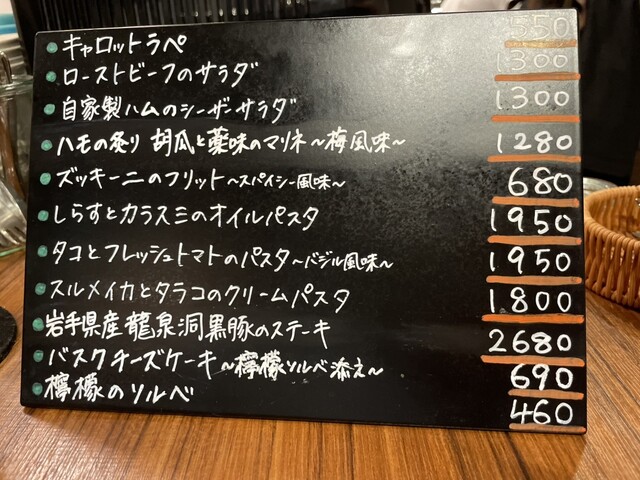 キャロットラペ 550
ローストビーフのサラダ 1300
自家製ハムのシーザーサラダ 1300
ハモの炙り 胡瓜と薬味のマリネ〜梅風味〜 1280
ズッキーニのフリット〜スパイシー風味〜 680
しらすとカラスミのオイルパスタ 1950
タコとフレッシュトマトのパスタ〜バジル風味〜 1950
スルメイカとタラコのクリームパスタ 1800
岩手県産龍泉洞黒豚のステーキ 2680
バスクチーズケーキ〜檸檬ソルベ添え〜 690
檸檬のソルベ 460